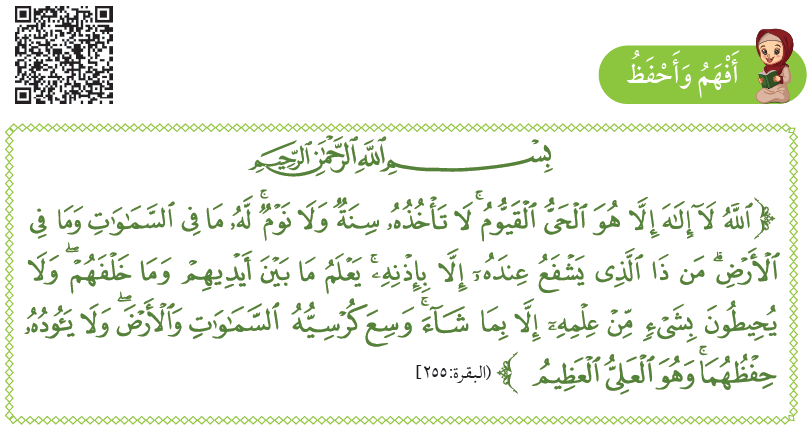 أَفْهَمُ وَأَحْفَظُ
بِسْمِ اللَّهِ الرَّحْمَٰنِ الرَّحِيمِ
﴿ ٱللَّهُ لَآ إِلَٰهَ إِلَّا هُوَ ٱلْحَىُّ ٱلْقَيُّومُ ۚ لَا تَأْخُذُهُۥ سِنَةٌ وَلَا نَوْمٌ ۚ لَّهُۥ مَا فِى ٱلسَّمَٰوَٰتِ وَمَا فِى
ٱلْأَرْضِ ۗ مَن ذَا ٱلَّذِى يَشْفَعُ عِندَهُۥٓ إِلَّا بِإِذْنِهِۦ ۚ يَعْلَمُ مَا بَيْنَ أَيْدِيهِمْ وَمَا خَلْفَهُمْ ۖ وَلَا
يُحِيطُونَ بِشَىْءٍ مِّنْ عِلْمِهِۦٓ إِلَّا بِمَا شَآءَ ۚ وَسِعَ كُرْسِيُّهُ ٱلسَّمَٰوَٰتِ وَٱلْأَرْضَ ۖ وَلَا يَـُٔودُهُۥ
حِفْظُهُمَا ۚ وَهُوَ ٱلْعَلِىُّ ٱلْعَظِيمُ ﴾ (البقرة: ٢٥٥]